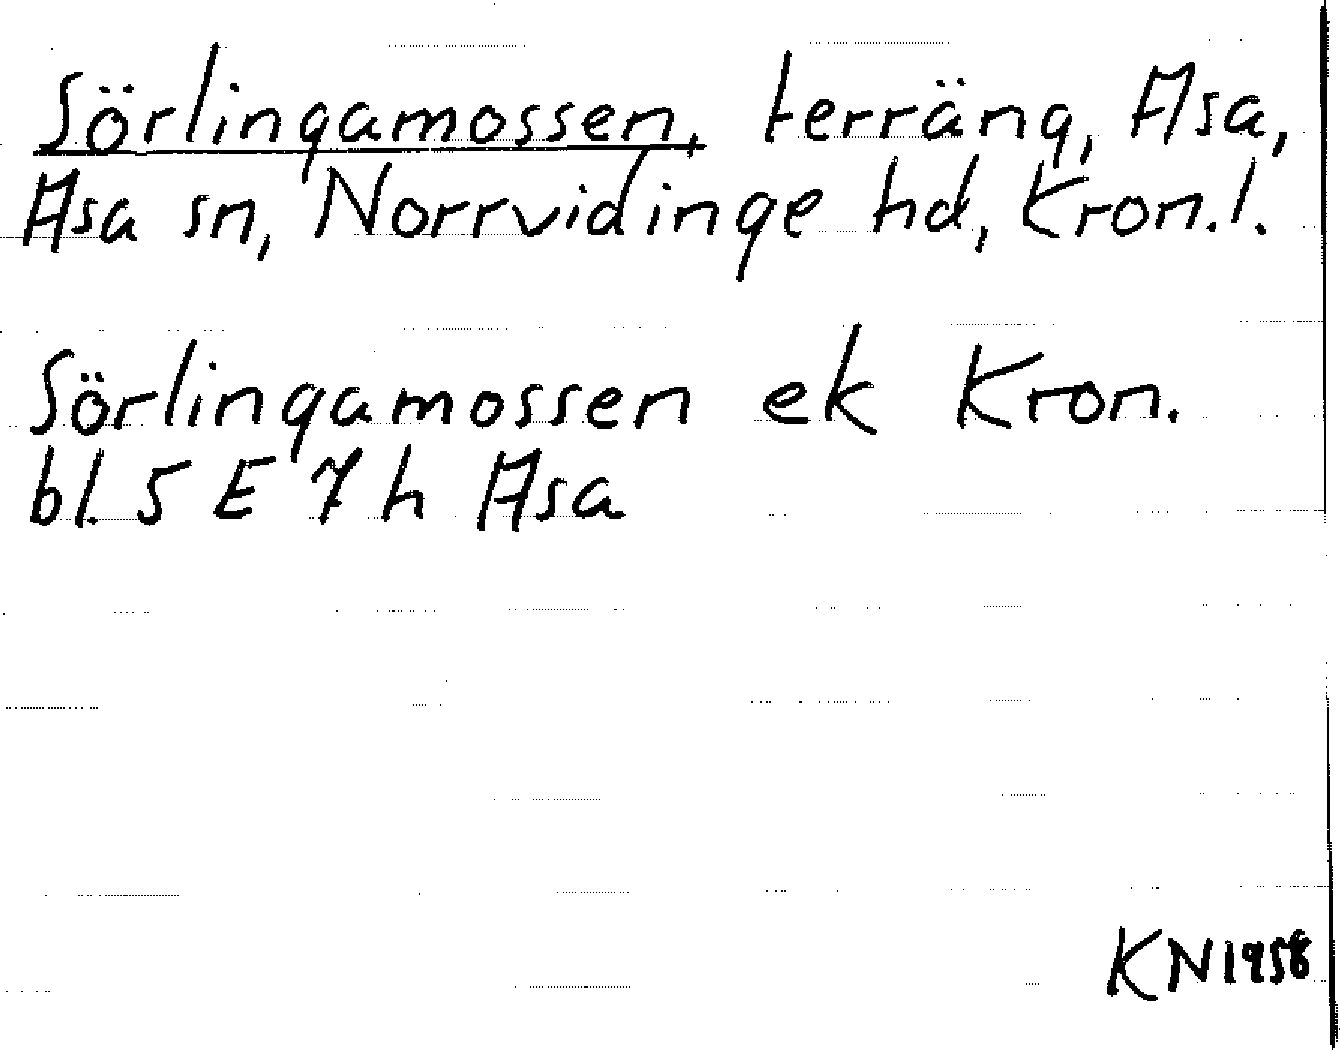 Sörlingamossen, terräng, Asa,
Asa sn, Norrvidinge hd, Kron.l.
Sörlingamossen ek Kron.
bl. 5 E 7 h Asa
KN 1958